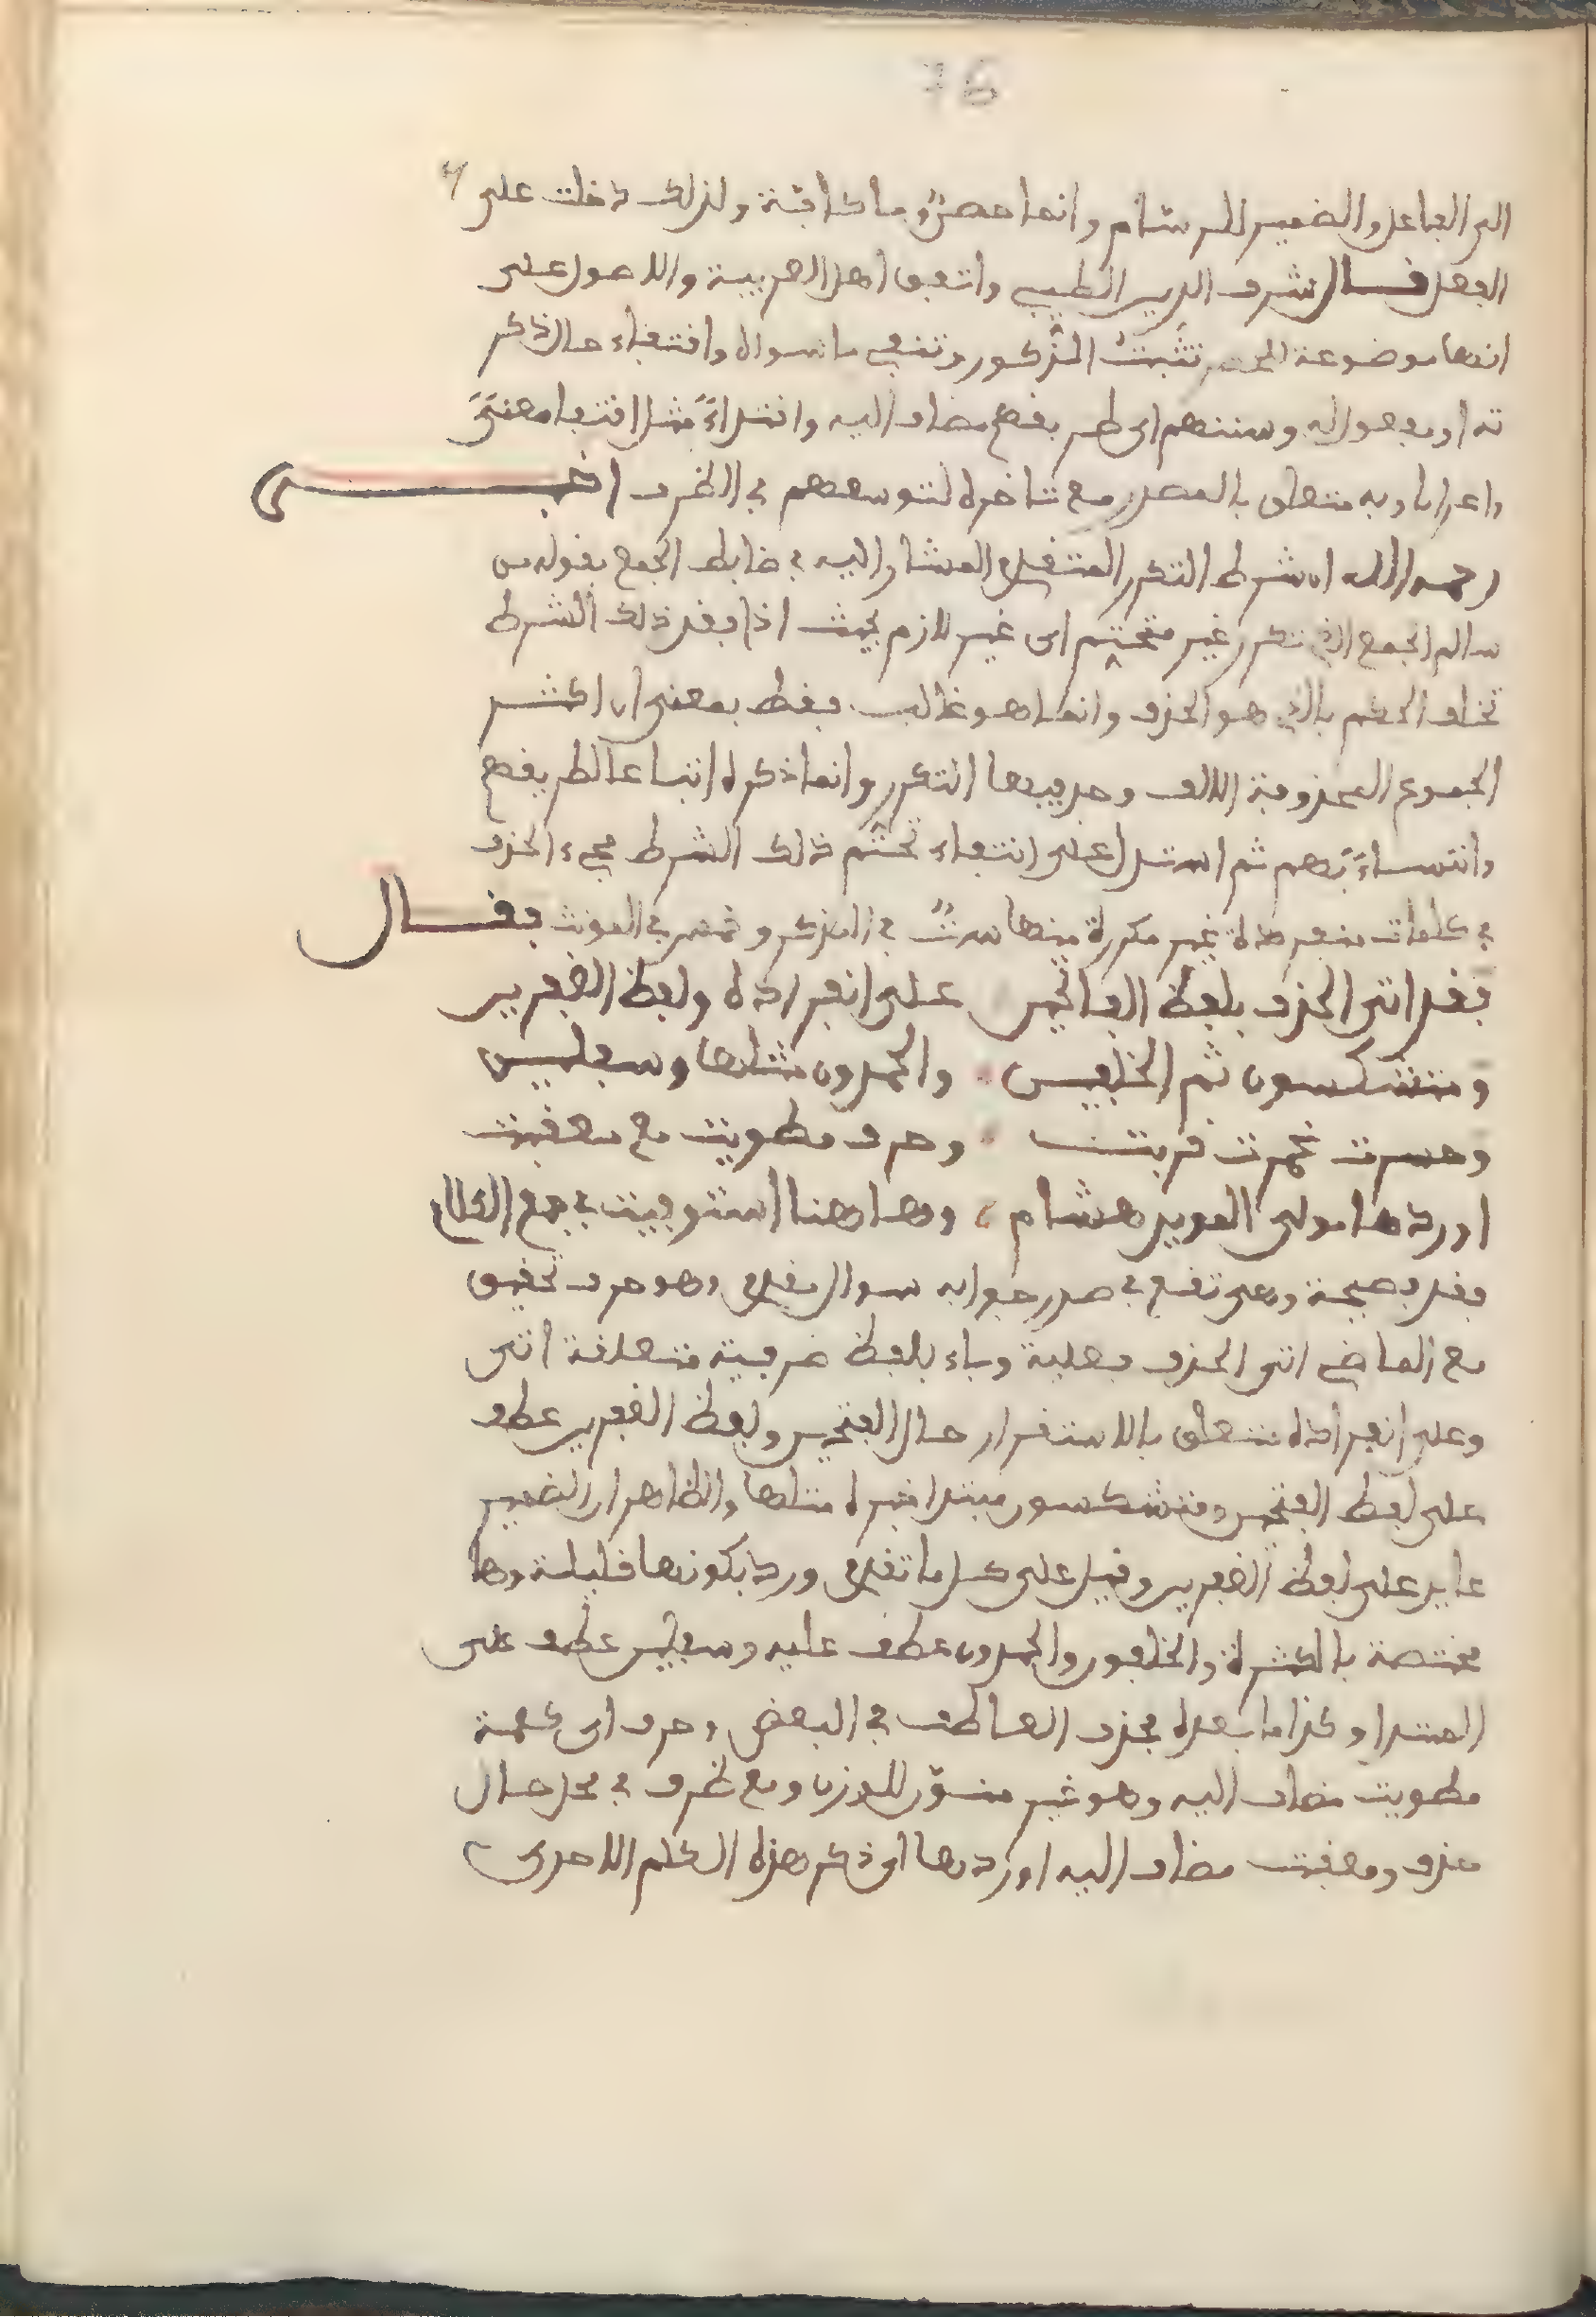 76
الى الفاعل والضمير للرسام وانما حصر وما كافة ولذلك دخلت على
الفعل قال شرف الدين الطيبي واتفق اهل العربية والاصول على
انها موضوعة للحصر تثبت المذكور وتنفي ما سواه واقتفاء حال ذكر
ته او مفعول له وسننهم اي طر يقهم مضاف اليه واقتداء مثل اقتفا معنى
واعرابا وبه متعلق بالمصدر مع تاخره لتوسعهم في الظرف اخبر
رحمه الله ان شرط التكرر المتقدم المشار اليه في ضابط الجمع بقوله من
سالم الجمع الذي تكرر غير متحتم اي غير لازم بحيث اذا فقد ذلك الشرط
تخلف الحكم بالذي هو الحذف وانما هو غالب فقط بمعنى ان اكثر
الجموع المحذوفة الالف وجد فيها التكرر وانما ذكره اتباعا لطر يقهم
وائتساء بهم ثم استدل على انتفاء تحتم ذلك الشرط بمجيء الحذف
في كلمات منفردة غير مكررة منها ست في المذكر و خمس في المونث فقال
فقد اتى الحذف بلفظ الفاتحين على انفراده ولفظ الغفرين
ومتشكسون ثم الخلفين والحمدون مثلها وسفلين
وحسرت غمرت قربت وحرف مطويت مع معقبت
اوردها مولى المويد هشام وها هنا استوفيت في جمع الكلام
فقد فصيحة وهي تقع في صدر جوابه سوال مقدر وهو حرف تحقيق
مع الماضي اتى الحذف فعلية وباء بلفظ ظرفية متعلقة اتى
وعلى انفراده متعلق بالاستقرار حال الفتحين ولفظ الغفرين عطف
على لفظ الفتحين ومتشكسون مبتدا خبره مثلها والظاهر ان الضمير
عايد على لفظ الغفرين وقيل على كل ما تقدم ورد بكونها قليلة وها
مختصة بالكثرة والخلفون والحمدون عطف عليه وسفلين عطف على
المبتدا وكذا ما بعده بحذف العاطف في البعض وحرف اي كلمة
مطويت مضاف اليه وهو غير منون للوزن ومع ظرف في محل حال
حذف ومعقبت مضاف اليه اوردها اي ذكر هذه الكلم الاحدى